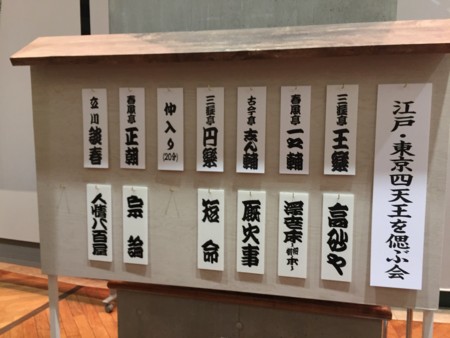 江戸・東京四天王を偲ぶ会
三遊亭 王楽
高砂や
春風亭 一之輔
浮世床
古今亭 志ん輔
厩火事
三遊亭 円楽
短命
仲入り
(20分)
春風亭 正朝
宗論
立川 談春
人情八百屋